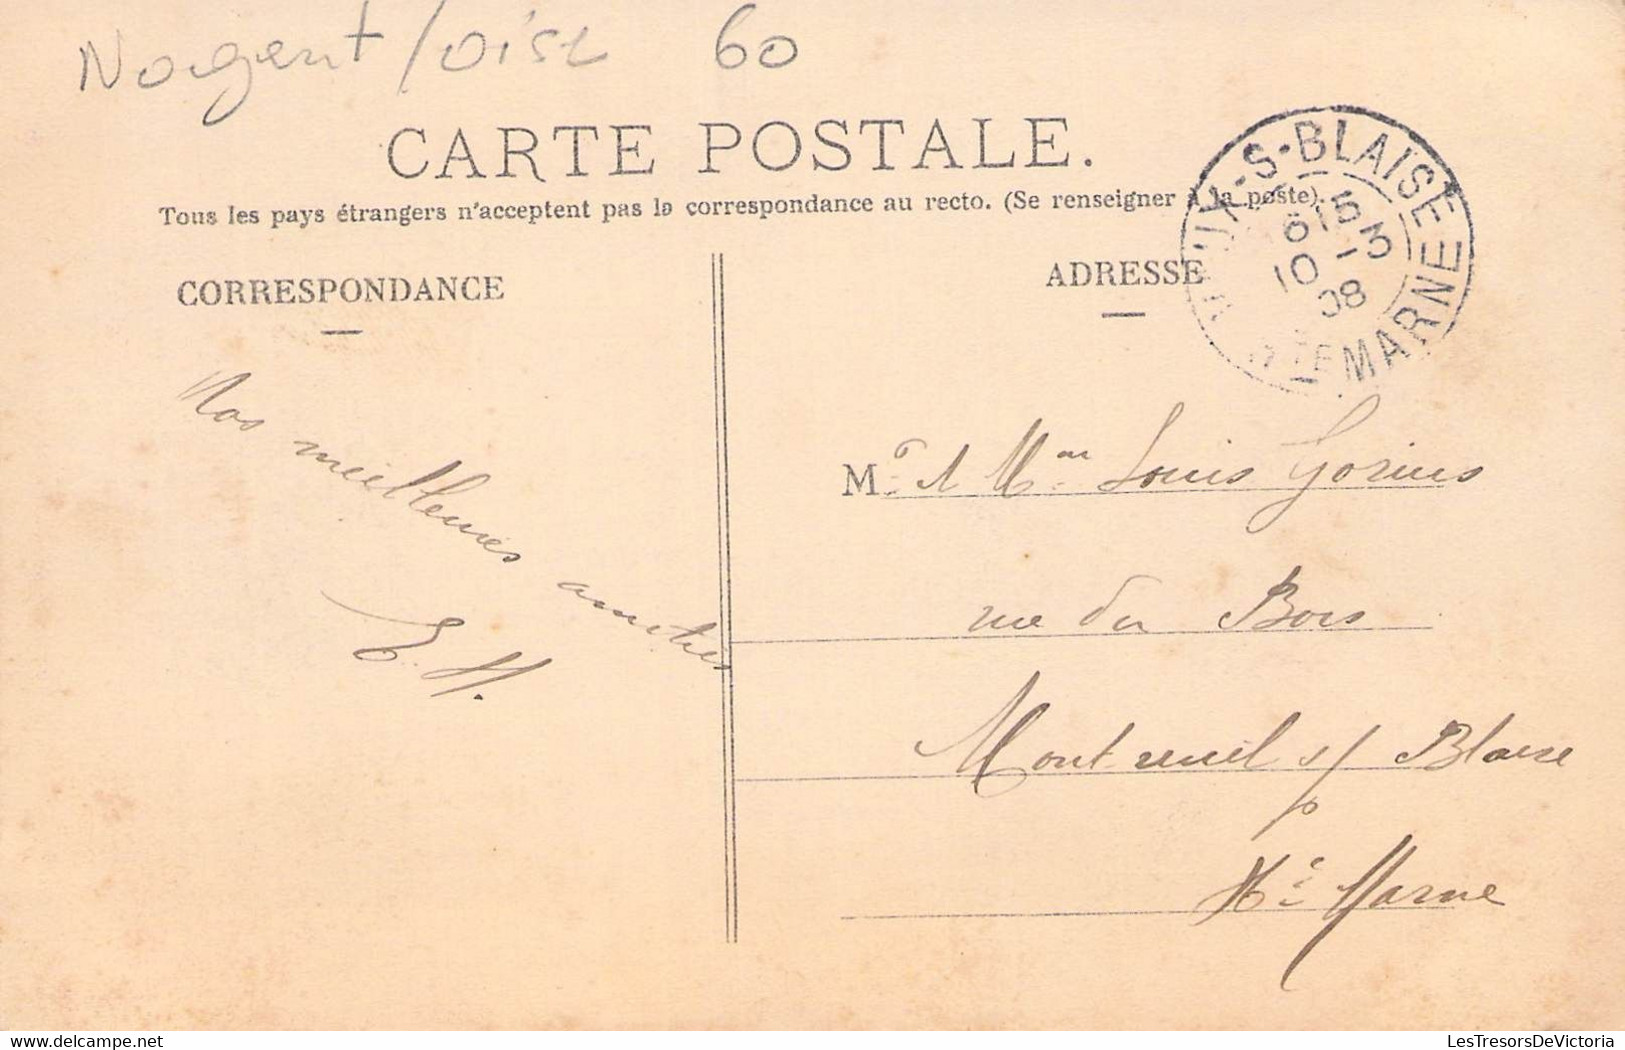 Nogent/oise 60
CARTE POSTALE.
Tous les pays étrangers n'acceptent pas la correspondance au recto. (Se renseigner à la poste).
CORRESPONDANCE
ADRESSE
UX-S-BLAISE
6 15
10 - 3
08
HTE MARNE
Nos meilleures
amitiés
E. H.
Mr et Mme Louis Gorius
rue du Bois
Montreuil s/ Blaise
Hte Marne
LesTresorsDeVictoria